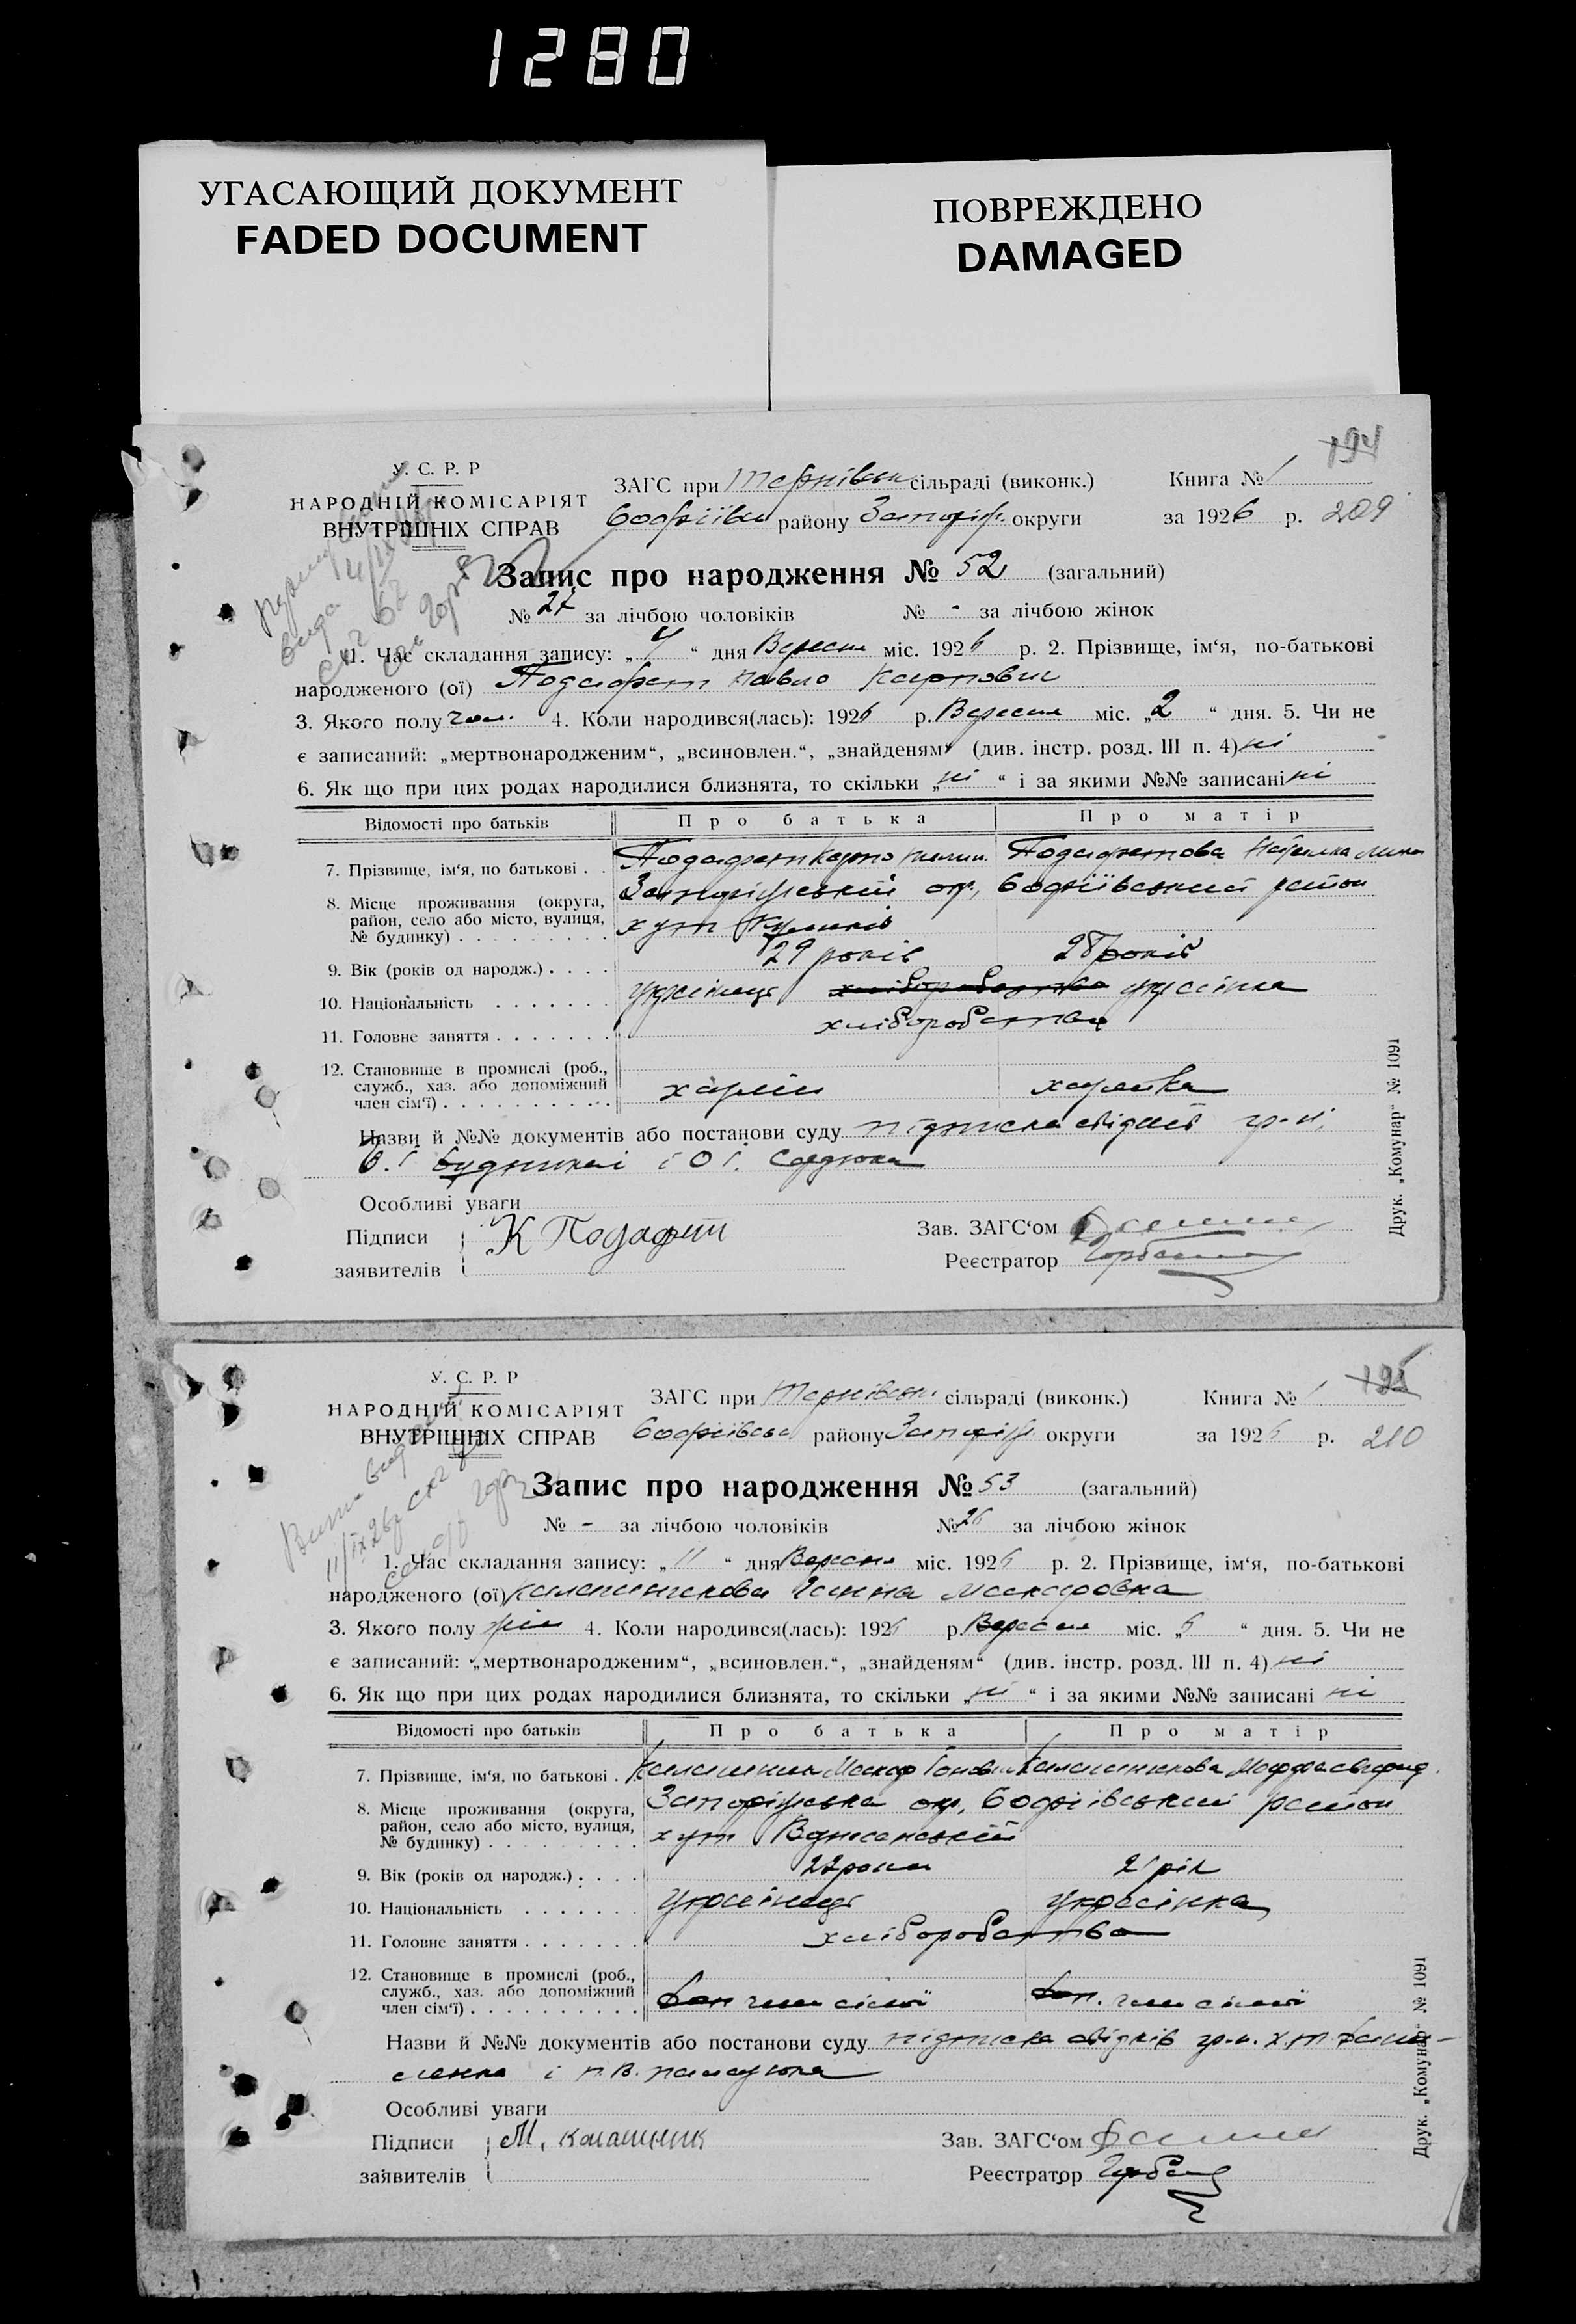 1280
УГАСАЮЩИЙ ДОКУМЕНТ
FADED DOCUMENT
ПОВРЕЖДЕНО
DAMAGED
194
У. С. Р. Р
НАРОДНІЙ КОМІСАРІЯТ
ВНУТРІШНІХ СПРАВ
ЗАГС при Тернівськ сільраді (виконк.) Книга № 1
району Запоріж. округи за 1926 р. 209
Запис про народження № 52 (загальний)
№ 27 за лічбою чоловіків № - за лічбою жінок
1. Час складання запису: „4“ дня Вересня міс. 1926 р. 2. Прізвище, ім‘я, по-батькові
народженого (ої) Подафет Павло Карпович
3. Якого полу чол. 4. Коли народився(лась): 1926 р. Вересня міс. „2“ дня. 5. Чи не
є записаний: „мертвонародженим“, „всиновлен.“, „знайденям“ (див. інстр. розд. III п. 4) ні
6. Як що при цих родах народилися близнята, то скільки „ні“ і за якими №№ записані ні
Відомості про батьків Про батька Про матір
7. Прізвище, ім‘я, по батькові . . Подафет Карпо Подафетова
8. Місце проживання (округа, район, село або місто, вулиця, № будинку) Запоріжської окр, район
хут
9. Вік (років од народж.) . . . . 29 років 28 років
10. Національність українець хліборобство українка
11. Головне заняття хліборобство
12. Становище в промислі (роб., служб., хаз. або допоміжний член сім‘ї) хазяїн хазяйка
Назви й №№ документів або постанови суду підписка свідків гр-н.
і О. І. Сердюка
Особливі уваги
Підписи заявителів К Подафет
Зав. ЗАГС‘ом
Реєстратор
Друк. „Комунар“ № 1091
195
У. С. Р. Р
НАРОДНІЙ КОМІСАРІЯТ
ВНУТРІШНІХ СПРАВ
ЗАГС при Тернівськ. сільраді (виконк.) Книга № 1
району Запоріж округи за 1926 р. 210
Запис про народження № 53 (загальний)
№ - за лічбою чоловіків № 26 за лічбою жінок
1. Час складання запису: „11“ дня Вересня міс. 1926 р. 2. Прізвище, ім‘я, по-батькові
народженого (ої) Калашникова Ганна Макаровна
3. Якого полу жін 4. Коли народився(лась): 1926 р. Вересня міс. „6“ дня. 5. Чи не
є записаний: „мертвонародженим“, „всиновлен.“, „знайденям“ (див. інстр. розд. III п. 4) ні
6. Як що при цих родах народилися близнята, то скільки „ні“ і за якими №№ записані ні
Відомості про батьків Про батька Про матір
7. Прізвище, ім‘я, по батькові . Калашник Макар Калашникова
8. Місце проживання (округа, район, село або місто, вулиця, № будинку) Запоріжська окр, район
хут Вознесенський
9. Вік (років од народж.) . . . . 22 роки 21 рік
10. Національність українець українка
11. Головне заняття хліборобство
12. Становище в промислі (роб., служб., хаз. або допоміжний член сім‘ї) доп член сім'ї доп. член сім'ї
Назви й №№ документів або постанови суду підписка свідків гр-н. Х. Т.
і П. В.
Особливі уваги
Підписи заявителів М. Калашник
Зав. ЗАГС‘ом
Реєстратор
Друк. „Комунар“ № 1091